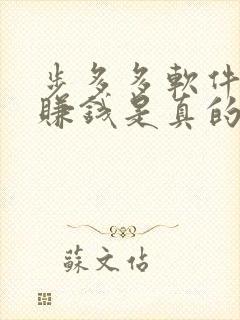 步多多軟件
賺錢是真的
蘇文佑